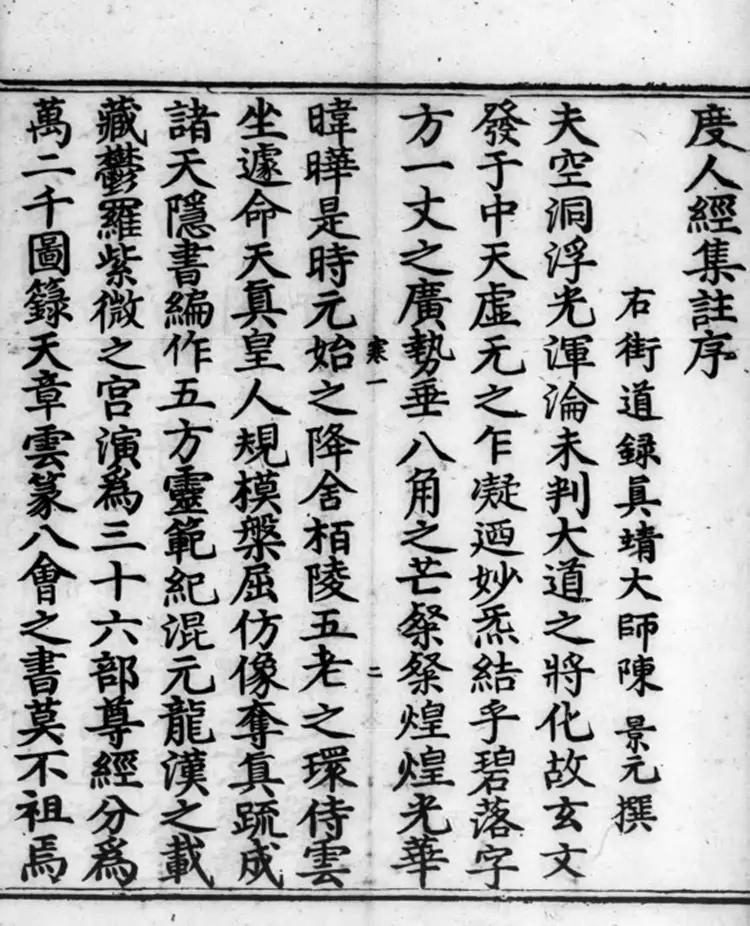 度人經集註序
右街道録真靖大師陳景元撰
夫空洞浮光渾淪未判大道之將化故玄文
發于中天虛无之乍凝迺妙炁結乎碧落字
方一丈之廣勢垂八角之芒粲粲煌煌光華
寒一
二
暐曄是時元始之降舍栢陵五老之環侍雲
坐遽命天真皇人規模槃屈仿像奪真疏成
諸天隱書編作五方靈範紀混元龍漢之載
藏鬱羅紫微之宮演為三十六部尊經分為
萬二千圖籙天章雲篆八會之書莫不祖焉